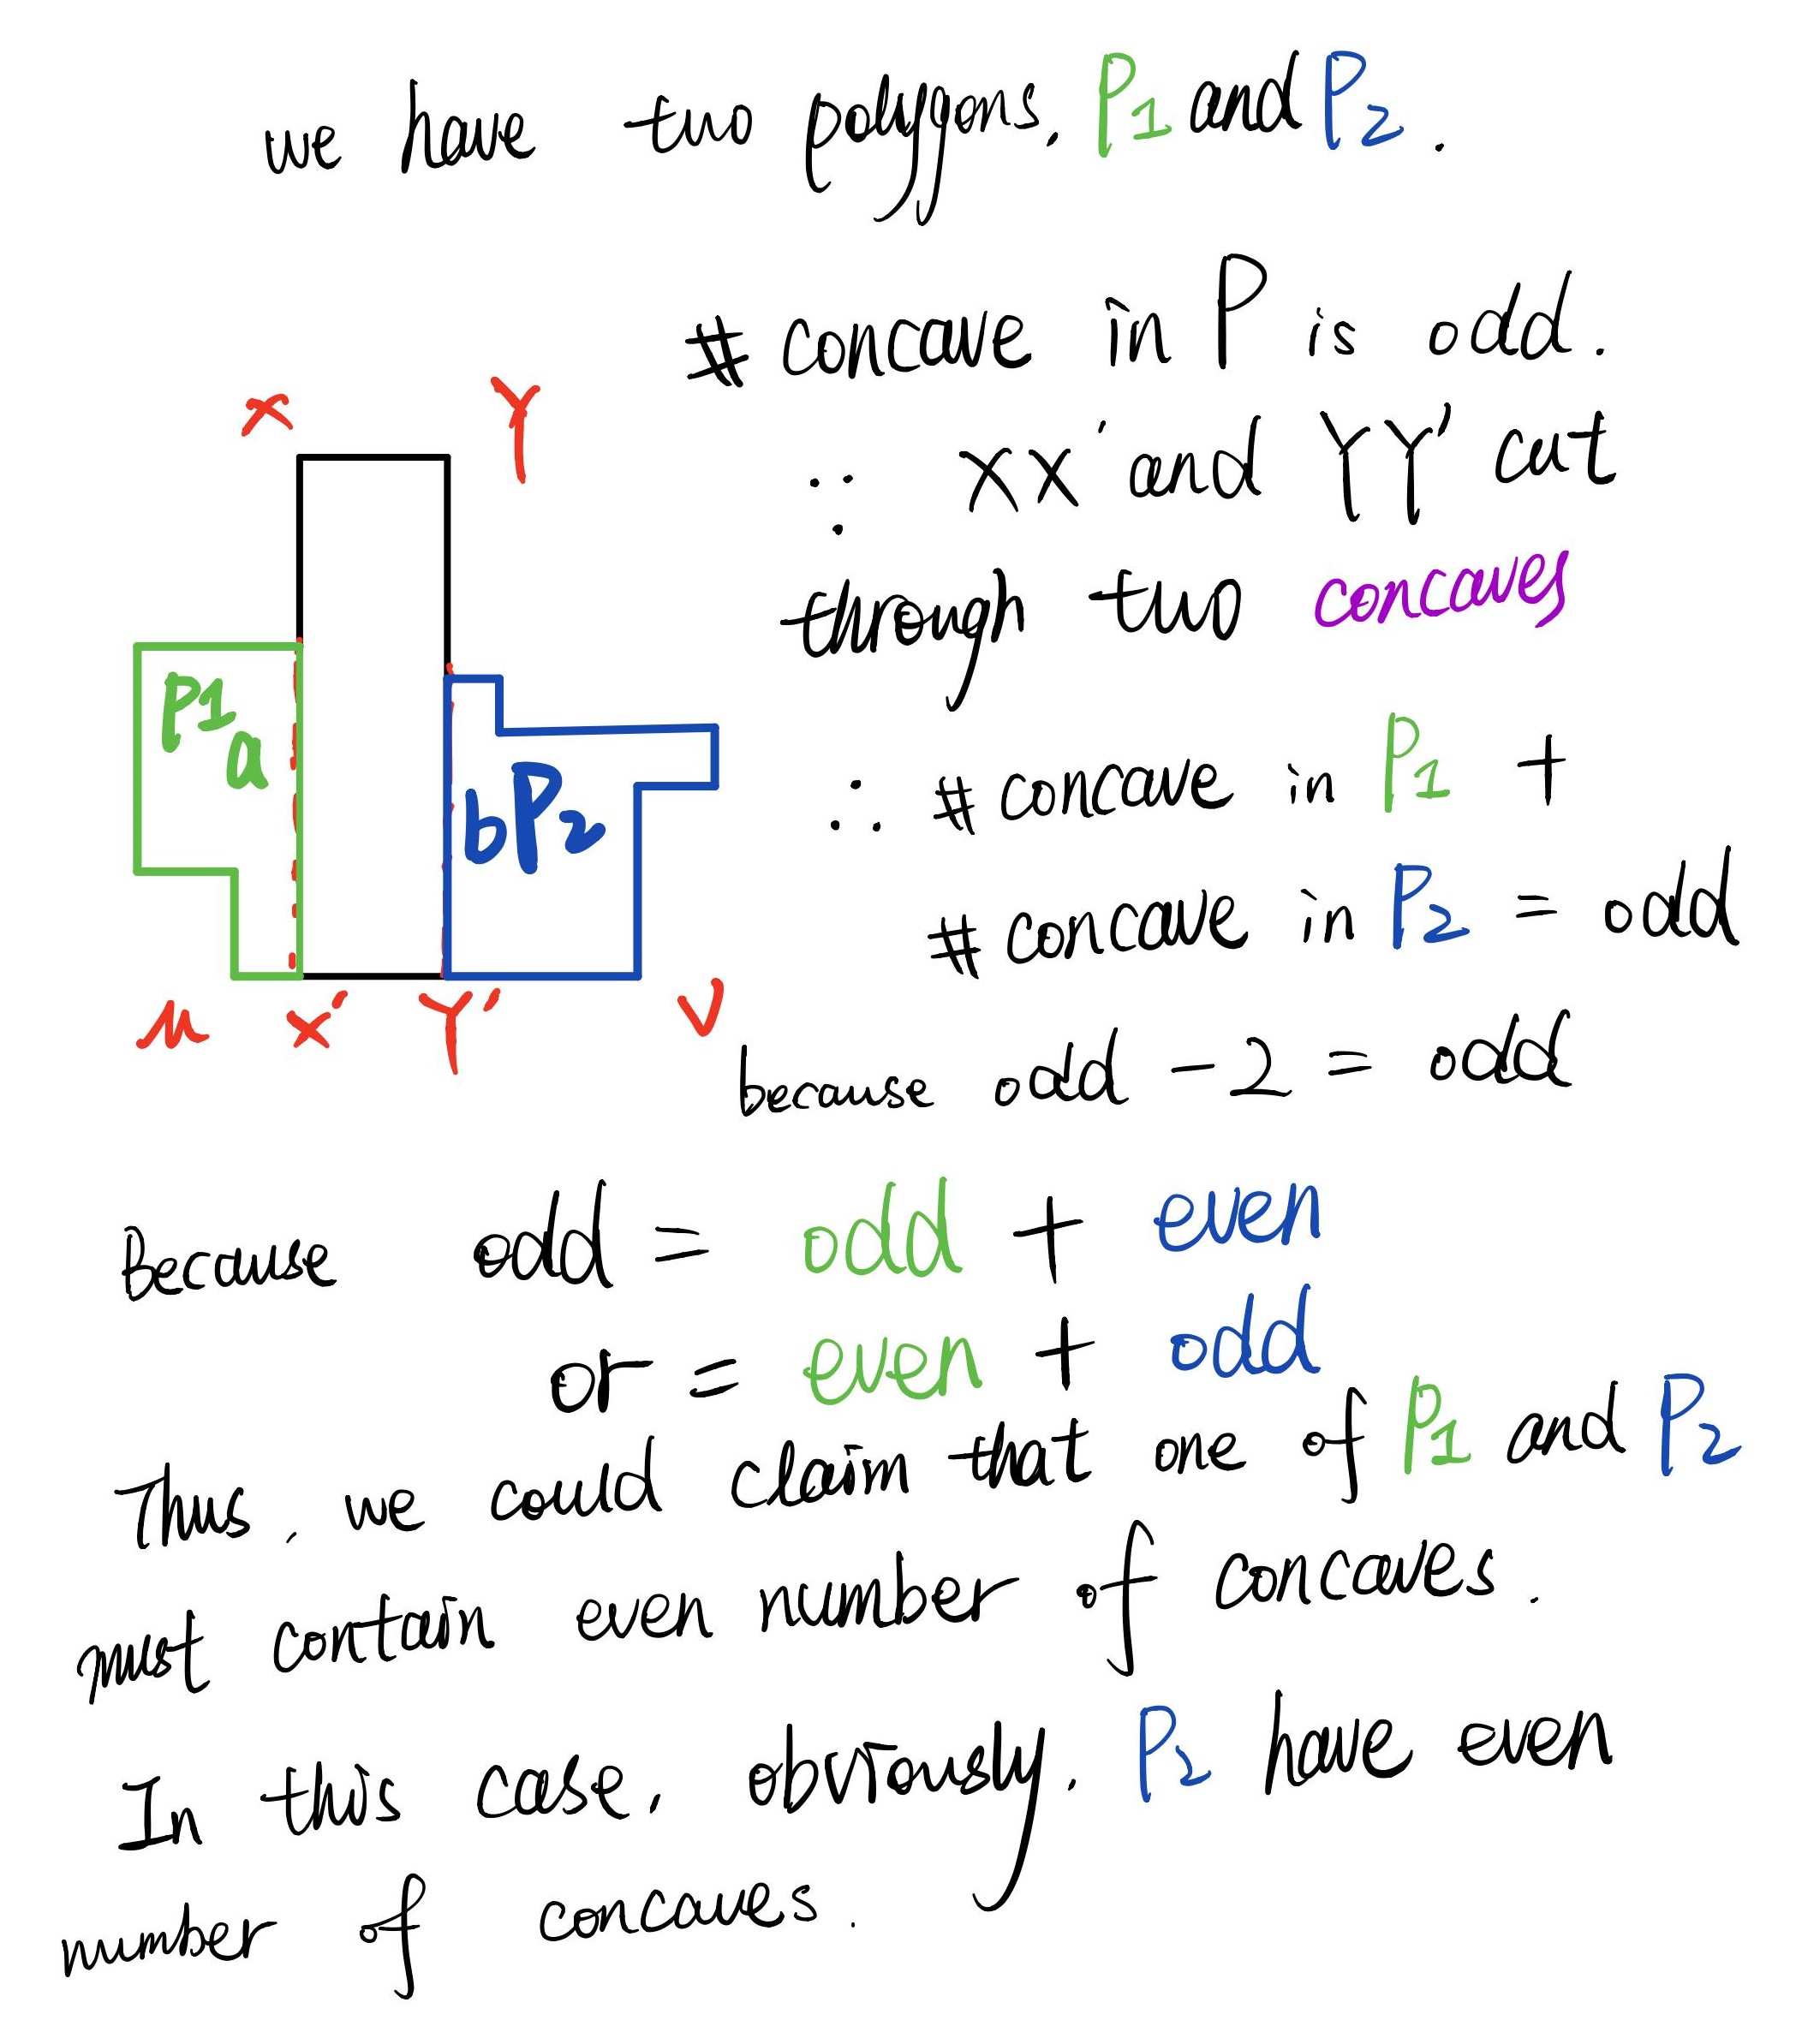 we have two polygons, P1 and P2.
# concave in P is odd.
X Y
∵ XX' and YY' cut
through two concaves
P1
a
bP2
∴ # concave in P1 +
# concave in P2 = odd
u X' Y' V
because odd - 2 = odd
Because odd = odd + even
or = even + odd
Thus, we could claim that one of P1 and P2
must contain even number of concaves.
In this case, obviously, P2 have even
number of concaves.